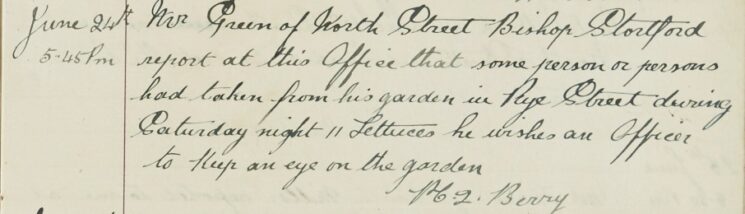 June 24th Mr Green of North Street Bishop Stortford
5-45 Pm report at this Office that some person or persons
had taken from his garden in Rye Street during
Saturday night 11 Lettuces he wishes an Officer
to keep an eye on the garden
Berry